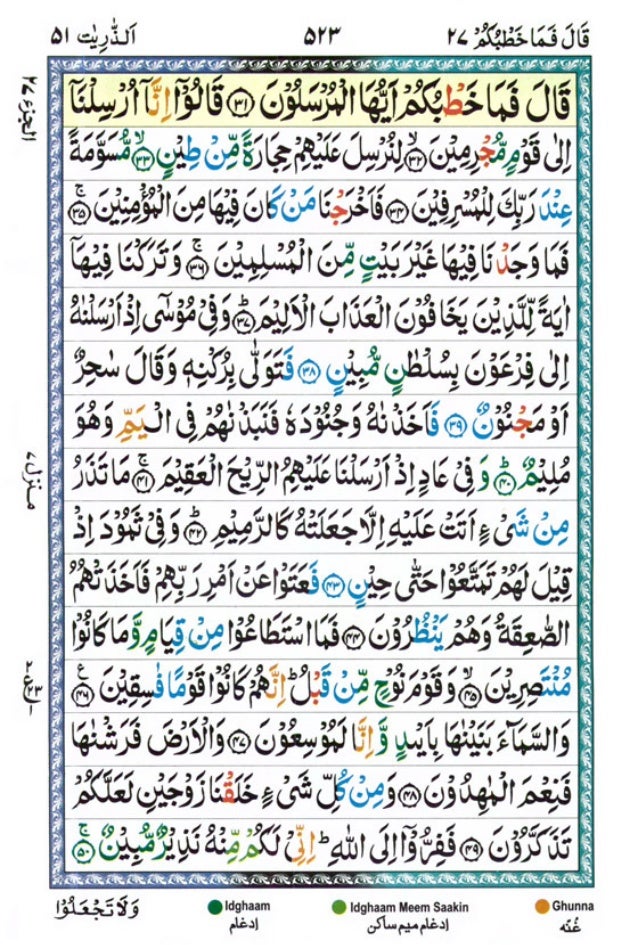 قَالَ فَمَا خَطْبُكُمْ ٢٧ ٥٢٣ اَلذّٰرِيٰت ٥١
قَالَ فَمَا خَطْبُكُمْ اَيُّهَا الْمُرْسَلُوْنَ ﴿٣١﴾ قَالُوْۤا اِنَّاۤ اُرْسِلْنَاۤ
اِلٰى قَوْمٍ مُّجْرِمِيْنَ ﴿٣٢﴾ۙ لِنُرْسِلَ عَلَيْهِمْ حِجَارَةً مِّنْ طِيْنٍ ﴿٣٣﴾ۙ مُّسَوَّمَةً
عِنْدَ رَبِّكَ لِلْمُسْرِفِيْنَ ﴿٣٤﴾ فَاَخْرَجْنَا مَنْ كَانَ فِيْهَا مِنَ الْمُؤْمِنِيْنَ ﴿٣٥﴾ۚ
فَمَا وَجَدْنَا فِيْهَا غَيْرَ بَيْتٍ مِّنَ الْمُسْلِمِيْنَ ﴿٣٦﴾ۚ وَتَرَكْنَا فِيْهَاۤ
اٰيَةً لِّلَّذِيْنَ يَخَافُوْنَ الْعَذَابَ الْاَلِيْمَ ﴿٣٧﴾ؕ وَفِيْ مُوْسٰۤى اِذْ اَرْسَلْنٰهُ
اِلٰى فِرْعَوْنَ بِسُلْطٰنٍ مُّبِيْنٍ ﴿٣٨﴾ فَتَوَلّٰى بِرُكْنِهٖ وَقَالَ سٰحِرٌ
اَوْ مَجْنُوْنٌ ﴿٣٩﴾ فَاَخَذْنٰهُ وَجُنُوْدَهٗ فَنَبَذْنٰهُمْ فِى الْيَمِّ وَهُوَ
مُلِيْمٌ ﴿٤٠﴾ؕ وَفِيْ عَادٍ اِذْ اَرْسَلْنَا عَلَيْهِمُ الرِّيْحَ الْعَقِيْمَ ﴿٤١﴾ۚ مَا تَذَرُ
مِنْ شَيْءٍ اَتَتْ عَلَيْهِ اِلَّا جَعَلَتْهُ كَالرَّمِيْمِ ﴿٤٢﴾ؕ وَفِيْ ثَمُوْدَ اِذْ
قِيْلَ لَهُمْ تَمَتَّعُوْا حَتّٰى حِيْنٍ ﴿٤٣﴾ فَعَتَوْا عَنْ اَمْرِ رَبِّهِمْ فَاَخَذَتْهُمُ
الصّٰعِقَةُ وَهُمْ يَنْظُرُوْنَ ﴿٤٤﴾ فَمَا اسْتَطَاعُوْا مِنْ قِيَامٍ وَّمَا كَانُوْا
مُنْتَصِرِيْنَ ﴿٤٥﴾ۙ وَقَوْمَ نُوْحٍ مِّنْ قَبْلُ ؕ اِنَّهُمْ كَانُوْا قَوْمًا فٰسِقِيْنَ ﴿٤٦﴾ۧ
وَالسَّمَآءَ بَنَيْنٰهَا بِاَيْىدٍ وَّاِنَّا لَمُوْسِعُوْنَ ﴿٤٧﴾ وَالْاَرْضَ فَرَشْنٰهَا
فَنِعْمَ الْمٰهِدُوْنَ ﴿٤٨﴾ وَمِنْ كُلِّ شَيْءٍ خَلَقْنَا زَوْجَيْنِ لَعَلَّكُمْ
تَذَكَّرُوْنَ ﴿٤٩﴾ فَفِرُّوْۤا اِلَى اللّٰهِ ؕ اِنِّيْ لَكُمْ مِّنْهُ نَذِيْرٌ مُّبِيْنٌ ﴿٥٠﴾ۚ
الجزء ٢٧
منزل ٧
وَلَا تَجْعَلُوْا
Idghaam
ادغام
Idghaam Meem Saakin
ادغام میم ساکن
Ghunna
غُنّه